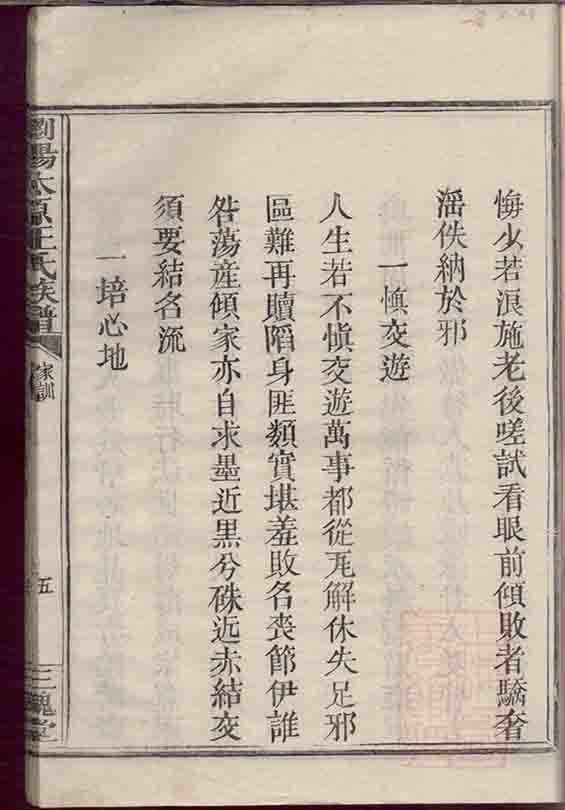 悔少若浪施老後嗟試看眼前傾敗者驕奢
滛佚納於邪
一慎交遊
人生若不慎交遊萬事都從瓦解休失足邪
區難再贖陷身匪類實堪羞敗名喪節伊誰
咎蕩產傾家亦自求墨近黑兮硃近赤結交
須要結名流
一培心地
瀏陽太原王氏族譜
家訓
五
三槐堂